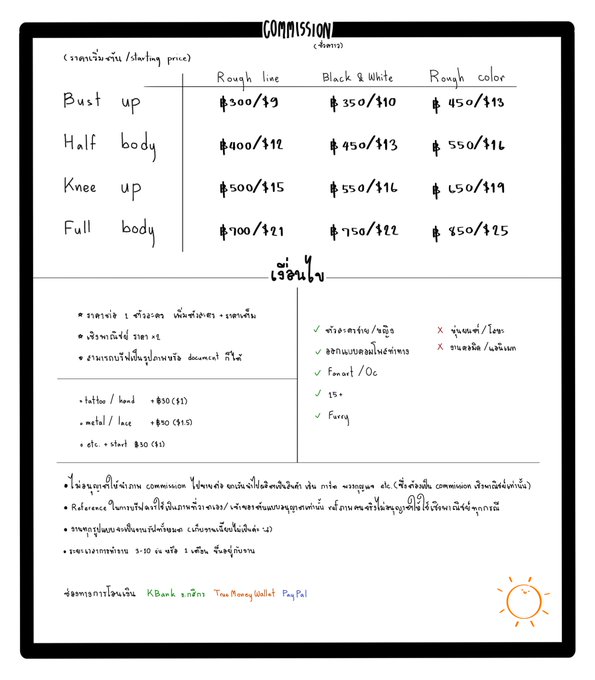 COMMISSION
(ชั่วคราว)
(ราคาเริ่มต้น/starting price)
Rough line Black & White Rough color
Bust up ฿300/$9 ฿350/$10 ฿450/$13
Half body ฿400/$12 ฿450/$13 ฿550/$16
Knee up ฿500/$15 ฿550/$16 ฿650/$19
Full body ฿700/$21 ฿750/$22 ฿850/$25
เงื่อนไข
* ราคาต่อ 1 ตัวละคร เพิ่มตัวละคร + ราคาเต็ม
* เชิงพาณิชย์ ราคา ×2
* สามารถบรีฟเป็นรูปภาพหรือ document ก็ได้
+ tattoo / hand +฿30($1)
+ metal / lace +฿50($1.5)
+ etc. + start ฿30($1)
✓ ตัวละครชาย/หญิง
✓ ออกแบบคอมโพสท่าทาง
✓ Fanart / Oc
✓ 15+
✓ Furry
X หุ่นยนต์/โลหะ
X งานคอมิค/แอนิเมท
• ไม่อนุญาตให้นำภาพ commission ไปขายต่อ ยกเว้นนำไปผลิตเป็นสินค้า เช่น การ์ด พวงกุญแจ etc. (ซึ่งต้องเป็น commission เชิงพาณิชย์เท่านั้น)
• Reference ในการบรีฟควรใช้เป็นภาพที่วาดเอง/เจ้าของต้นแบบอนุญาตเท่านั้น ไม่อนุญาตให้ใช้เชิงพาณิชย์ทุกกรณี
• งานทุกรูปแบบจะเป็นงานรัฟทั้งหมด (เก็บงานเนี๊ยบไม่เป็นค่ะ :<)
• ระยะเวลาการทำงาน 3-10 วัน หรือ 1 เดือน ขึ้นอยู่กับงาน
ช่องทางการโอนเงิน KBank ธ.กสิกร True.Money Wallet PayPal